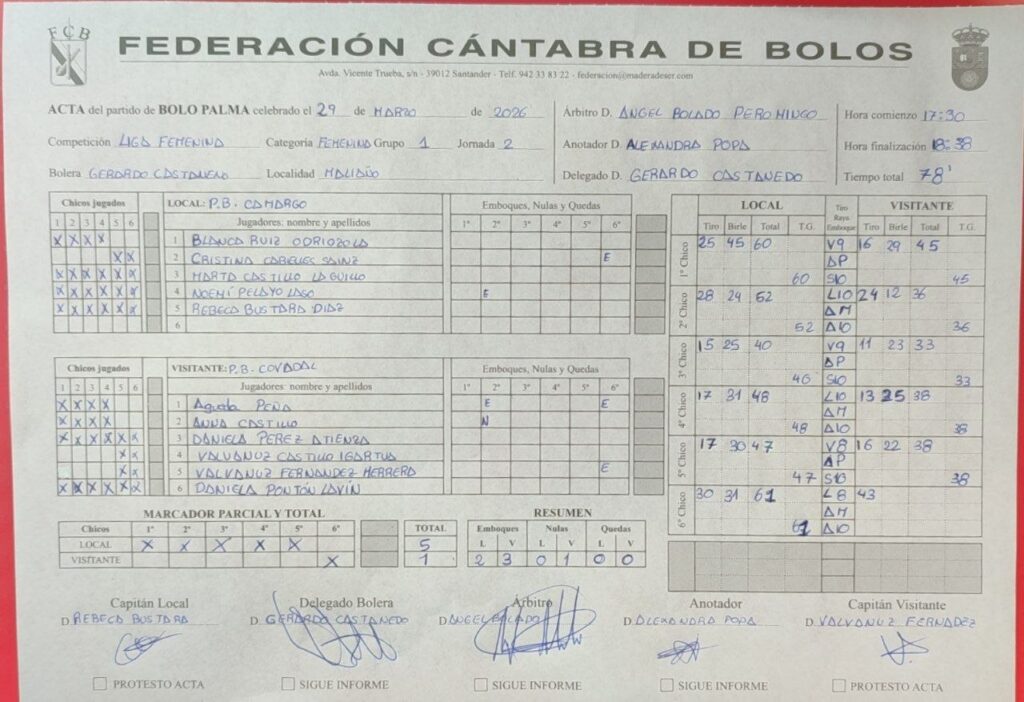 FCB
FEDERACIÓN CÁNTABRA DE BOLOS
Avda. Vicente Trueba, s/n - 39012 Santander - Telf. 942 33 83 22 - federacion@maderadeser.com
ACTA del partido de BOLO PALMA celebrado el 29 de MARZO de 2026
Competición LIGA FEMENINA Categoría FEMENINA Grupo 1 Jornada 2
Bolera GERARDO CASTANEDO Localidad MALIAÑO
Árbitro D. ANGEL BOLADO PEROMINGO
Anotador D. ALEXANDRA POPA
Delegado D. GERARDO CASTANEDO
Hora comienzo 17:30
Hora finalización 18:38
Tiempo total 78'
Chicos jugados LOCAL: P.B. CAMARGO Emboques, Nulas y Quedas
1 2 3 4 5 6 Jugadores: nombre y apellidos 1º 2º 3º 4º 5º 6º
X X X X 1 BLANCA RUIZ ODRIOZOLA
X X 2 CRISTINA CABIELES SAINZ E
X X X X X X 3 MARTA CASTILLO LAGUILLO
X X X X X X 4 NOEMÍ PELAYO LAGO E
X X X X X X 5 REBECA BUSTARA DIAZ
6
Chicos jugados VISITANTE: P.B. COVADAL Emboques, Nulas y Quedas
1 2 3 4 5 6 Jugadores: nombre y apellidos 1º 2º 3º 4º 5º 6º
X X X X 1 Agueda PEÑA E E
X X X X 2 ANNA CASTILLO N
X X X X X X 3 DANIELA PEREZ ATIENZA
X X 4 VALVANUZ CASTILLO IGARTUA
X X 5 VALVANUZ FERNANDEZ HERRERO E
X X X X X X 6 DANIELA PONTÓN LAVÍN
MARCADOR PARCIAL Y TOTAL
Chicos 1º 2º 3º 4º 5º 6º TOTAL
LOCAL X X X X X 5
VISITANTE X 1
RESUMEN
Emboques Nulas Quedas
L V L V L V
2 3 0 1 0 0
LOCAL Tiro Raya Emboque VISITANTE
Tiro Birle Total T.G. Tiro Birle Total T.G.
1º Chico 25 45 60 V9 16 29 45
ΔP
60 S10 45
2º Chico 28 24 52 L10 24 12 36
ΔM
52 Δ10 36
3º Chico 15 25 40 V9 11 23 33
ΔP
40 S10 33
4º Chico 17 31 48 L10 13 25 38
ΔM
48 Δ10 38
5º Chico 17 30 47 V8 16 22 38
ΔP
47 S10 38
6º Chico 30 31 61 L8 43
ΔM
61 Δ10
Capitán Local Delegado Bolera Árbitro Anotador Capitán Visitante
D. REBECA BUSTARA D. GERARDO CASTANEDO D. ANGEL BOLADO D. ALEXANDRA POPA D. VALVANUZ FERNADEZ
PROTESTO ACTA SIGUE INFORME SIGUE INFORME SIGUE INFORME PROTESTO ACTA